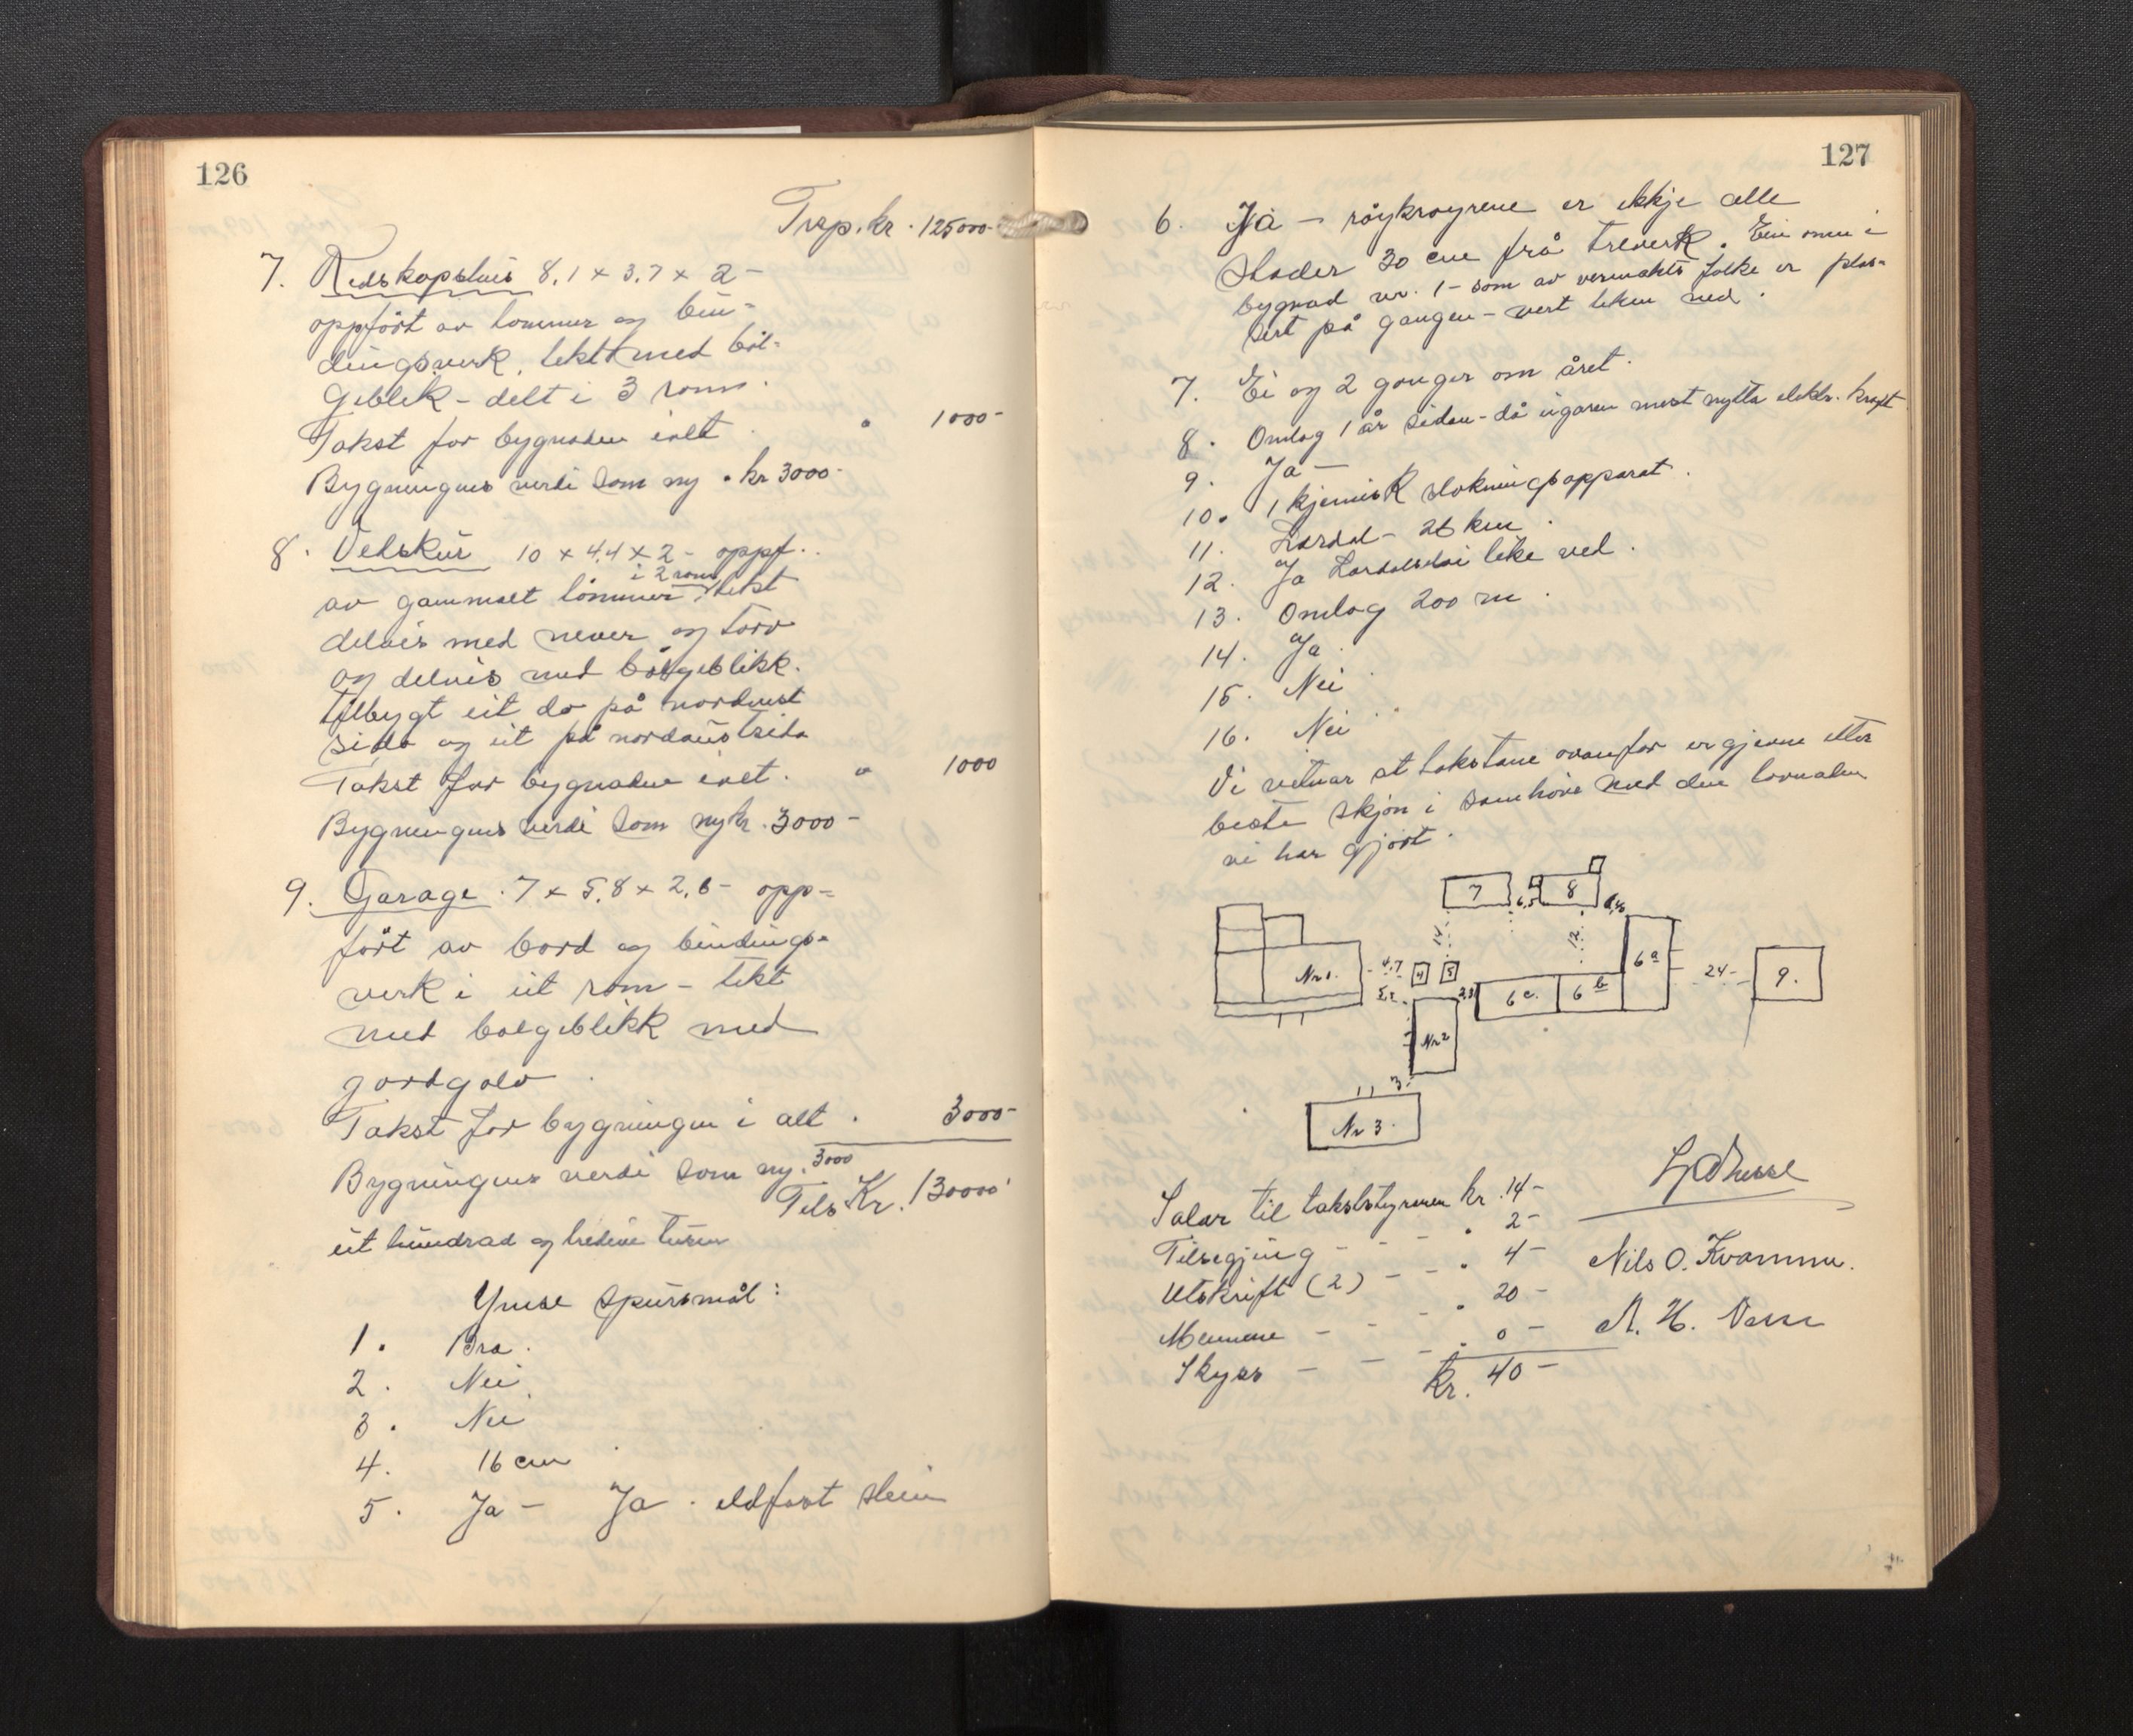 126
Trsp. kr. 125000-
7. Redskapshus 8,1 x 3,7 x 2 -
oppført av tømmer og bin-
dingsverk, tekt med bøl-
geblek - delt i 3 rom.
Takst for bygnaden ialt . " 1000-
Bygningens verdi som ny . kr 3000-
8. Vedskur 10 x 4,4 x 2 - oppf..
i 2 rom
av gammalt tømmer, tekt
delvis med never og torv
og delvis med bølgeblikk.
Tilbygt eit do på nordvest
sida og eit på nordaustsida
Takst for bygnaden ialt. " 1000
Bygningens verdi som ny kr. 3000-
9. Garage . 7 x 5,8 x 2,6 - opp-
ført av bord og bindings-
verk i eit rom - tekt
med bølgeblikk med
jordgolv .
Takst for bygningen i alt . 3000-
Bygningens verdi som ny. 3000
Tils Kr. 130000
eit hundrad og tredive tusen
Ymse spursmål :
1. Bra.
2. Nei
3. Nei
4. 16 cm
5. Ja - Ja . eldfast stein
127
6. Ja - røykrøyrene er ikkje alle
stader 30 cm frå treverk. Ein omn i
bygnad nr. 1 - som av vermakts folke er plas-
sert på gangen - vert teken ned.
7. Ei og 2 gonger om året.
8. Omlag 1 år sidan - då eigaren mest nytta elektr. kraft
9. Ja -
10. 1 kjemisk slokningsapparat.
11. Lærdal - 26 km.
12. Ja Lærdalselvi like ved.
13. Omlag 200 m.
14. Ja.
15. Nei
16. Nei
Vi vitnar at takstane ovanfor er gjevne etter
beste skjøn i samhøve med den lovnaden
vi har gjort.
7 6,5 8
14 12
Nr 1. 4,7 4 5 6 a 24- 9.
2,8 6 c. 6 b
Nr 2
3-
Nr 3.
Salær til takststyremenn kr. 14-
Tilsegjing - - - " 2-
Utskrift (2) - - " 4-
Mennene - - - " 20-
Skyss - - - " 0 -
Kr. 40-
Nils O. Kvamme.